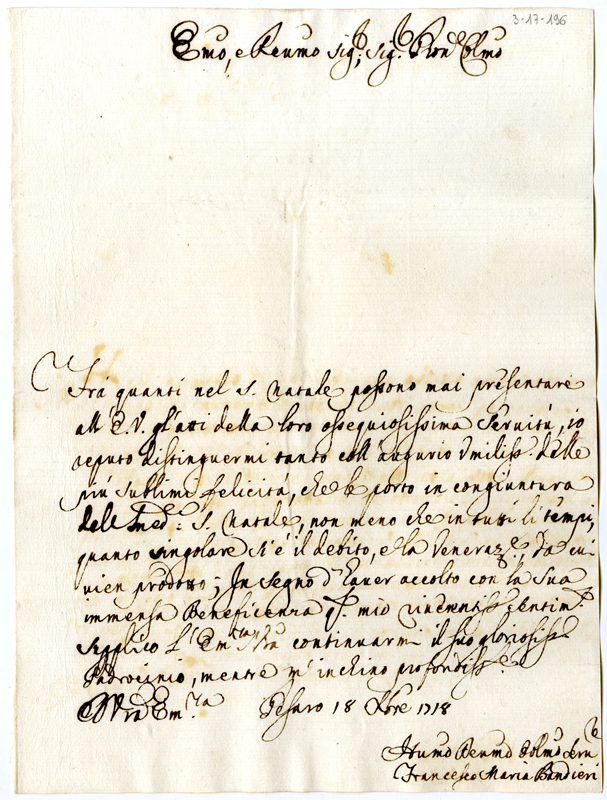 3-17-196
Emo, e Reumo Sig.r, Sig.r Pron Colmo
Frà quanti nel S. Natale possono mai presentare
all' E.V. gl'atti della loro ossequiosissima Servitù, io
reputo distinguermi tanto coll' augurio Vmiliss.o delle
più sublimi felicità, che le porto in congiuntura
dell' Med.o: S. Natale, non meno che in tutti li tempi,
quanto singolare si è il debito, e la Veneraz.e, da cui
vien prodotto; In segno d'hauer accolto con la Sua
immensa Beneficenza q.to mio sentim.to
Supplico L' Em.za Vra continuarmi il suo gloriosiss.o
Padrocinio, mentre m' inchino profondiss.e
Di Vra Em.za Pesaro 18 Xbre 1718
Humo Deumo Oblmo Seru.e
Francesco Maria Bandieri